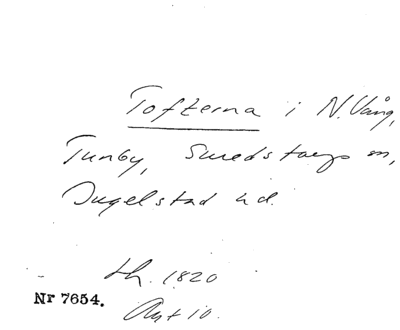 Tofterna i N. Vång,
Tunby, Smedstorps sn,
Ingelstad hd.
th. 1820
Nr 7654.
Akt 10.